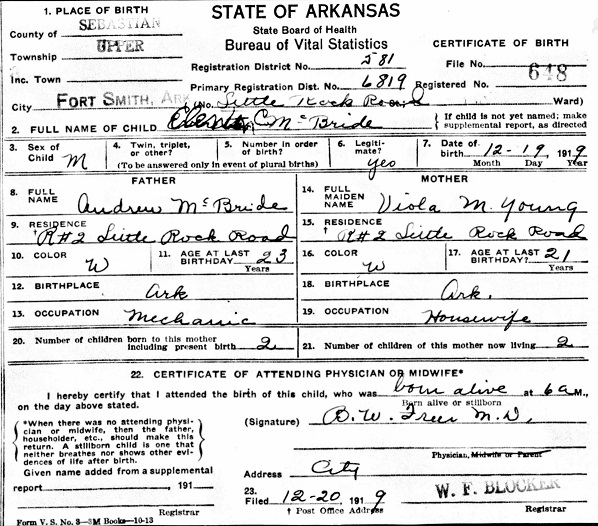 1. PLACE OF BIRTH
STATE OF ARKANSAS
State Board of Health
Bureau of Vital Statistics
CERTIFICATE OF BIRTH
County of SEBASTIAN
Township UPPER
Registration District No. 581
File No.
Inc. Town
Primary Registration Dist. No. 6819 Registered No. 648
City FORT SMITH, ARK (No. Little Rock Road Ward)
2. FULL NAME OF CHILD C. McBride
If child is not yet named; make supplemental report, as directed
3. Sex of Child M
4. Twin, triplet, or other?
5. Number in order of birth?
(To be answered only in event of plural births)
6. Legiti-mate? yes
7. Date of birth 12-19, 1919
Month Day Year
FATHER
8. FULL NAME Andrew McBride
9. RESIDENCE † R#2 Little Rock Road
10. COLOR W
11. AGE AT LAST BIRTHDAY 23
Years
12. BIRTHPLACE Ark
13. OCCUPATION Mechanic
MOTHER
14. FULL MAIDEN NAME Viola M. Young
15. RESIDENCE † R#2 Little Rock Road
16. COLOR W
17. AGE AT LAST BIRTHDAY? 21
Years
18. BIRTHPLACE Ark.
19. OCCUPATION Housewife
20. Number of children born to this mother including present birth 2
21. Number of children of this mother now living 2
22. CERTIFICATE OF ATTENDING PHYSICIAN OR MIDWIFE*
I hereby certify that I attended the birth of this child, who was born alive at 6 a M.,
on the day above stated.
Born alive or stillborn
*When there was no attending physi-
cian or midwife, then the father,
householder, etc., should make this
return. A stillborn child is one that
neither breathes nor shows other evi-
dences of life after birth.
(Signature) B. W. Freer M.D.
Physician, Midwife or Parent
Given name added from a supplemental
report , 191
Address City
23.
Filed 12-20 1919
† Post Office Address
W. F. BLOCKER
Registrar
Registrar
Form V. S. No. 3-3M Books-10-13